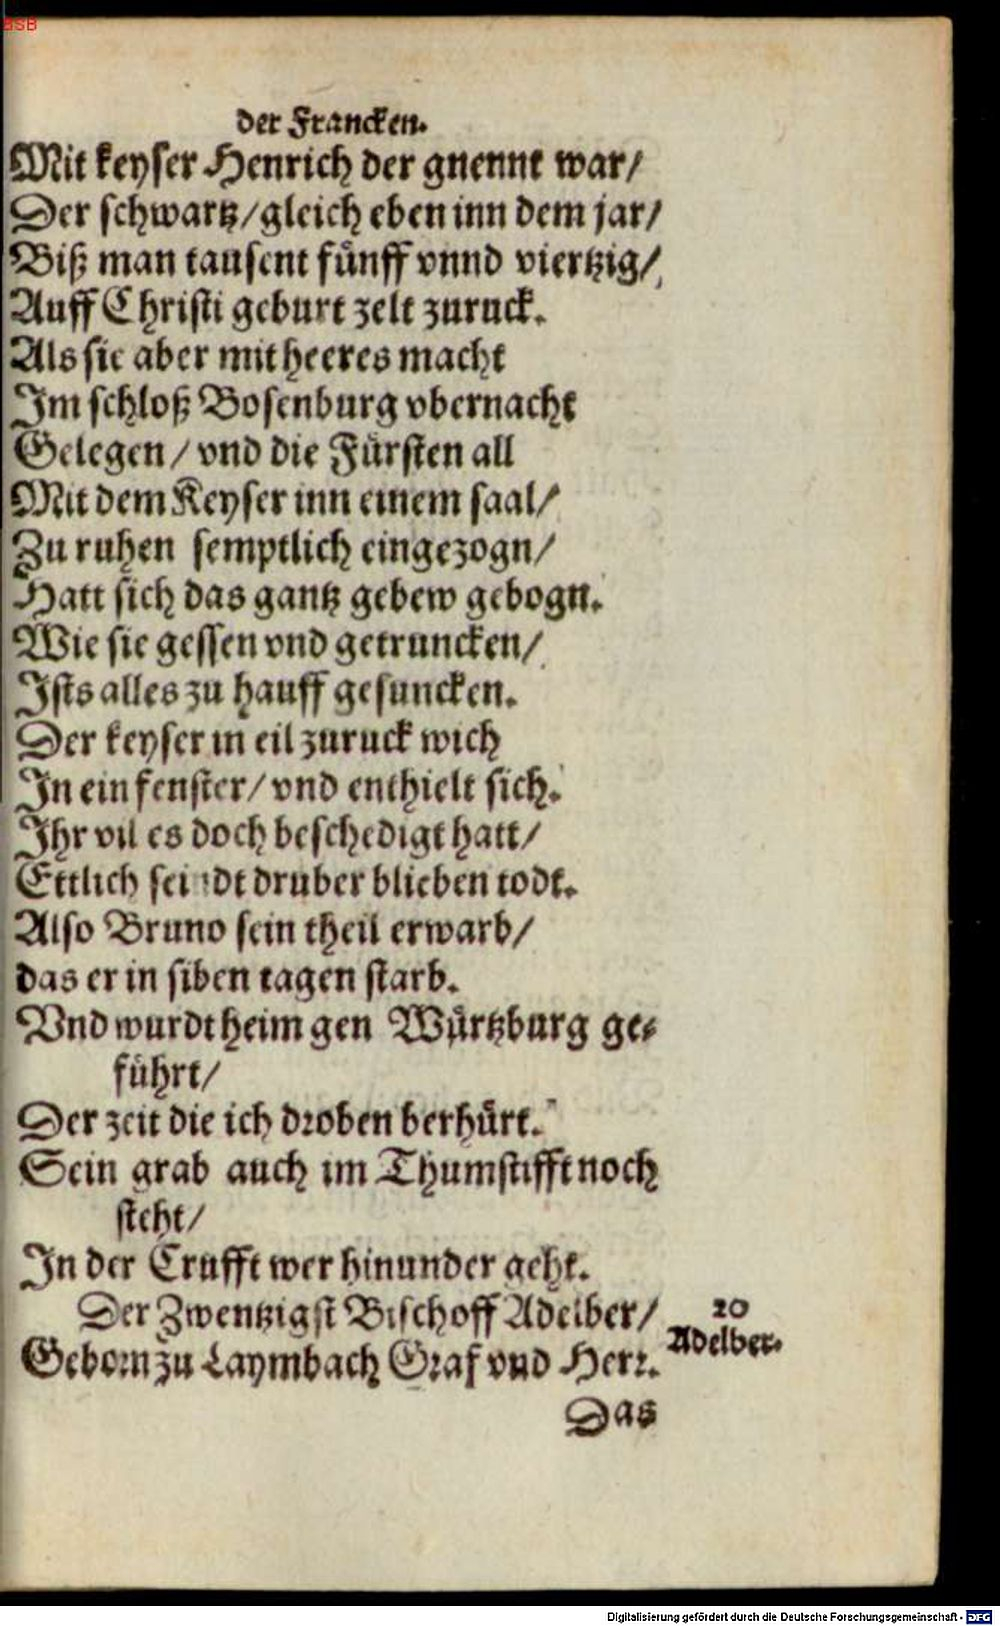 BSB
der Francken.
Mit keyser Henrich der gnennt war/
Der schwartz/gleich eben inn dem jar/
Biß man tausent fünff vnnd viertzig/
Auff Christi geburt zelt zuruck.
Als sie aber mit heeres macht
Im schloß Bosenburg vbernacht
Gelegen/ vnd die Fürsten all
Mit dem Keyser inn einem saal/
Zu ruhen semptlich eingezogn/
Hatt sich das gantz gebew gebogn.
Wie sie gessen vnd getruncken/
Ists alles zu hauff gesuncken.
Der keyser in eil zuruck wich
In ein fenster/ vnd enthielt sich.
Ihr vil es doch beschedigt hatt/
Ettlich seindt druber blieben todt.
Also Bruno sein theil erwarb/
das er in siben tagen starb.
Vnd wurdt heim gen Würtzburg ge-
führt/
Der zeit die ich droben berhürt.
Sein grab auch im Thumstifft noch
steht/
In der Crufft wer hinunder geht.
Der Zwentzigst Bischoff Adelber/
20
Adelber.
Geborn zu Laymbach Graf vnd Herr.
Das
Digitalisierung gefördert durch die Deutsche Forschungsgemeinschaft - DFG